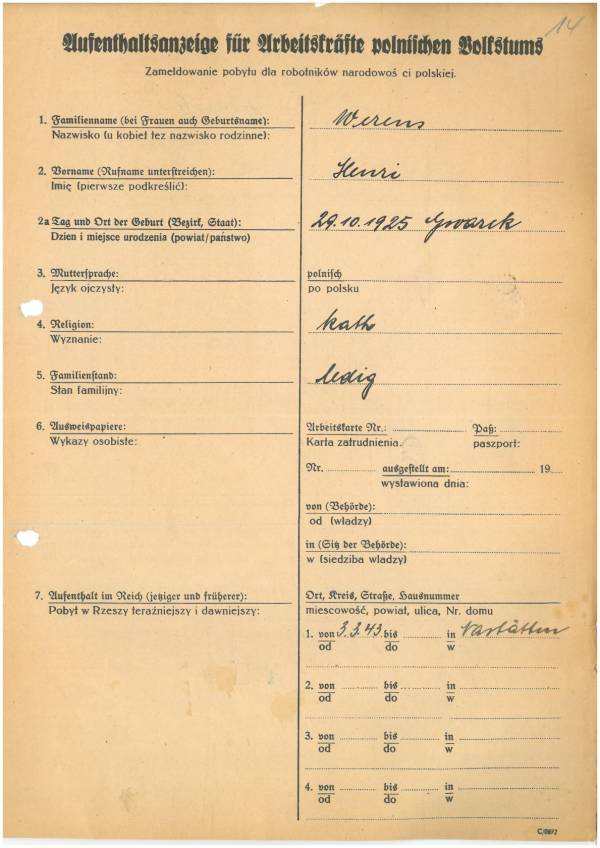 14
Aufenthaltsanzeige für Arbeitskräfte polnischen Volkstums
Zameldowanie pobytu dla robotników narodowoś ci polskiej.
1. Familienname (bei Frauen auch Geburtsname): Werens
Nazwisko (u kobiet też nazwisko rodzinne):
2. Vorname (Rufname unterstreichen): Henri
Imię (pierwsze podkreślić):
2a Tag und Ort der Geburt (Bezirk, Staat): 29.10.1925 Gwarek
Dzien i miejsce urodzenia (powiat/państwo)
3. Muttersprache: polnisch
Język ojczysty: po polsku
4. Religion: kath
Wyznanie:
5. Familienstand: ledig
Stan familijny:
6. Ausweispapiere: Arbeitskarte Nr.: Paß:
Wykazy osobiste: Karta zatrudnienia. paszport:
Nr. ausgestellt am: 19
wystawiona dnia:
von (Behörde):
od (władzy)
in (Sitz der Behörde):
w (siedziba wladzy)
7. Aufenthalt im Reich (jetziger und früherer): Ort, Kreis, Straße, Hausnummer
Pobyt w Rzeszy teraźniejszy i dawniejszy: miescowość, powiat, ulica, Nr. domu
1. von 3.3.43. bis in Nastätten
od do w
2. von bis in
od do w
3. von bis in
od do w
4. von bis in
od do w
C/0872